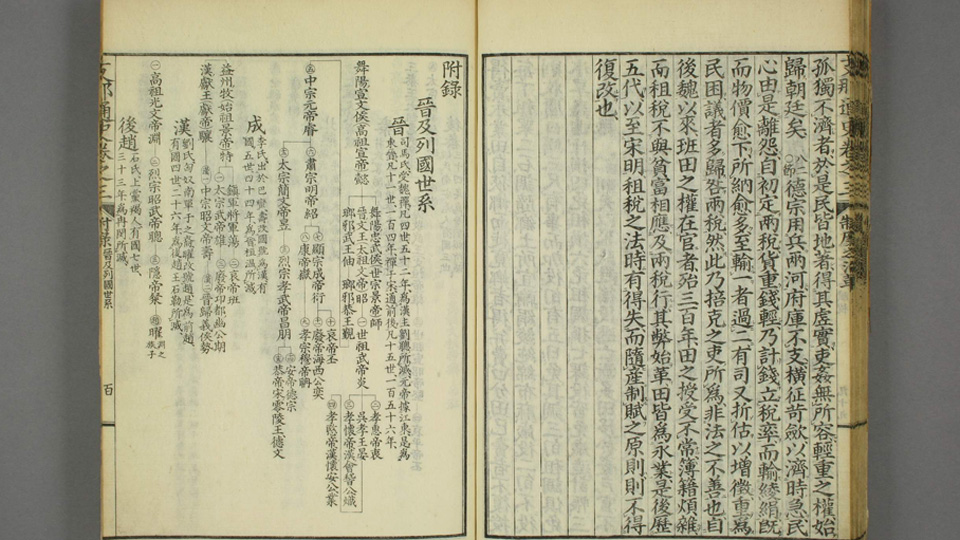 孤獨不濟者於是民皆地著得其虛實吏姦無所容輕重之權始
歸朝廷矣德宗用兵兩河府庫不支橫征苛斂以濟時急民
心由是離怨自初定兩稅貨重錢輕乃計錢立稅率而輸綾絹旣
而物價愈下所納愈多至輸一者過二有司又折估以增徵重爲
民困議者多歸咎兩稅然此乃掊克之吏所爲非法之不善也自
後魏以來班田之權在官者殆三百年田之授受不常簿籍煩雜
而租稅不與貧富相應及兩稅行其弊始革田皆爲永業是後歷
五代以至宋明租稅之法時有得失而隨產制賦之原則則不得
復改也
附錄
晉及列國世系
晉
司馬氏受魏禪凡四世五十二年爲漢主劉聰所滅元帝據江東是爲
東晉凡十一世一百四年禪于宋通前後凡十五世一百五十六年
舞陽宣文侯高祖宣帝懿
舞陽忠武侯世宗景帝師
晉文王太祖文帝昭
一世祖武帝炎
二孝惠帝衷
吳孝王晏
三孝懷帝漢會稽公熾
四孝愍帝漢懷安公業
瑯邪武王伷
瑯邪恭王覲
五中宗元帝睿
六肅宗明帝紹
七顯宗成帝衍
十哀帝丕
廢帝海西公奕
八康帝嶽
九孝宗穆帝聃
太宗簡文帝昱
烈宗孝武帝昌明
安帝德宗
恭帝宋零陵王德文
成
李氏出於巴蠻壽改國號爲漢有
國五世四十四年爲晉桓溫所滅
益州牧始祖景帝特
鎭軍將軍蕩
三哀帝班
一太宗武帝雄
廢帝邛都幽公期
漢獻王獻帝驤
中宗昭文帝壽
晉歸義侯勢
漢
劉氏匈奴南單于之裔曜改號趙是爲前趙
有國四世二十六年爲後趙王石勒所滅
一高祖光文帝淵
二烈宗昭武帝聰
三隱帝粲
四曜淵之族子
後趙
石氏上黨羯人有國七世
三十三年爲冉閔所滅
附錄晉及列國世系
百